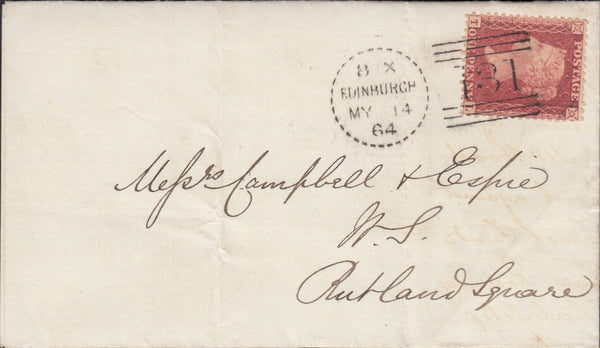 8 X
EDINBURGH
MY 14
64
131
POSTAGE
ONE PENNY
Messrs Campbell & Espie
W.S.
Rutland Square